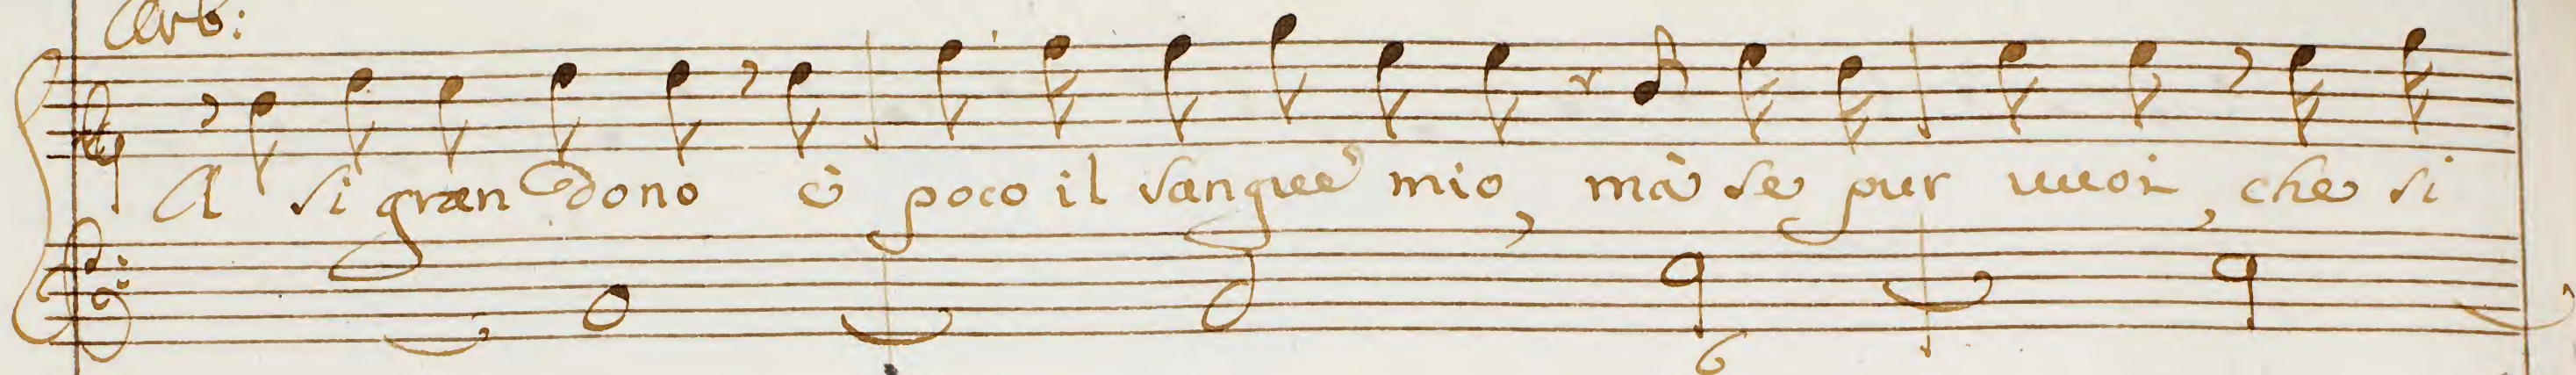 Arb:
A si gran dono è poco il sangue mio, mà se pur uuoi, che si
6